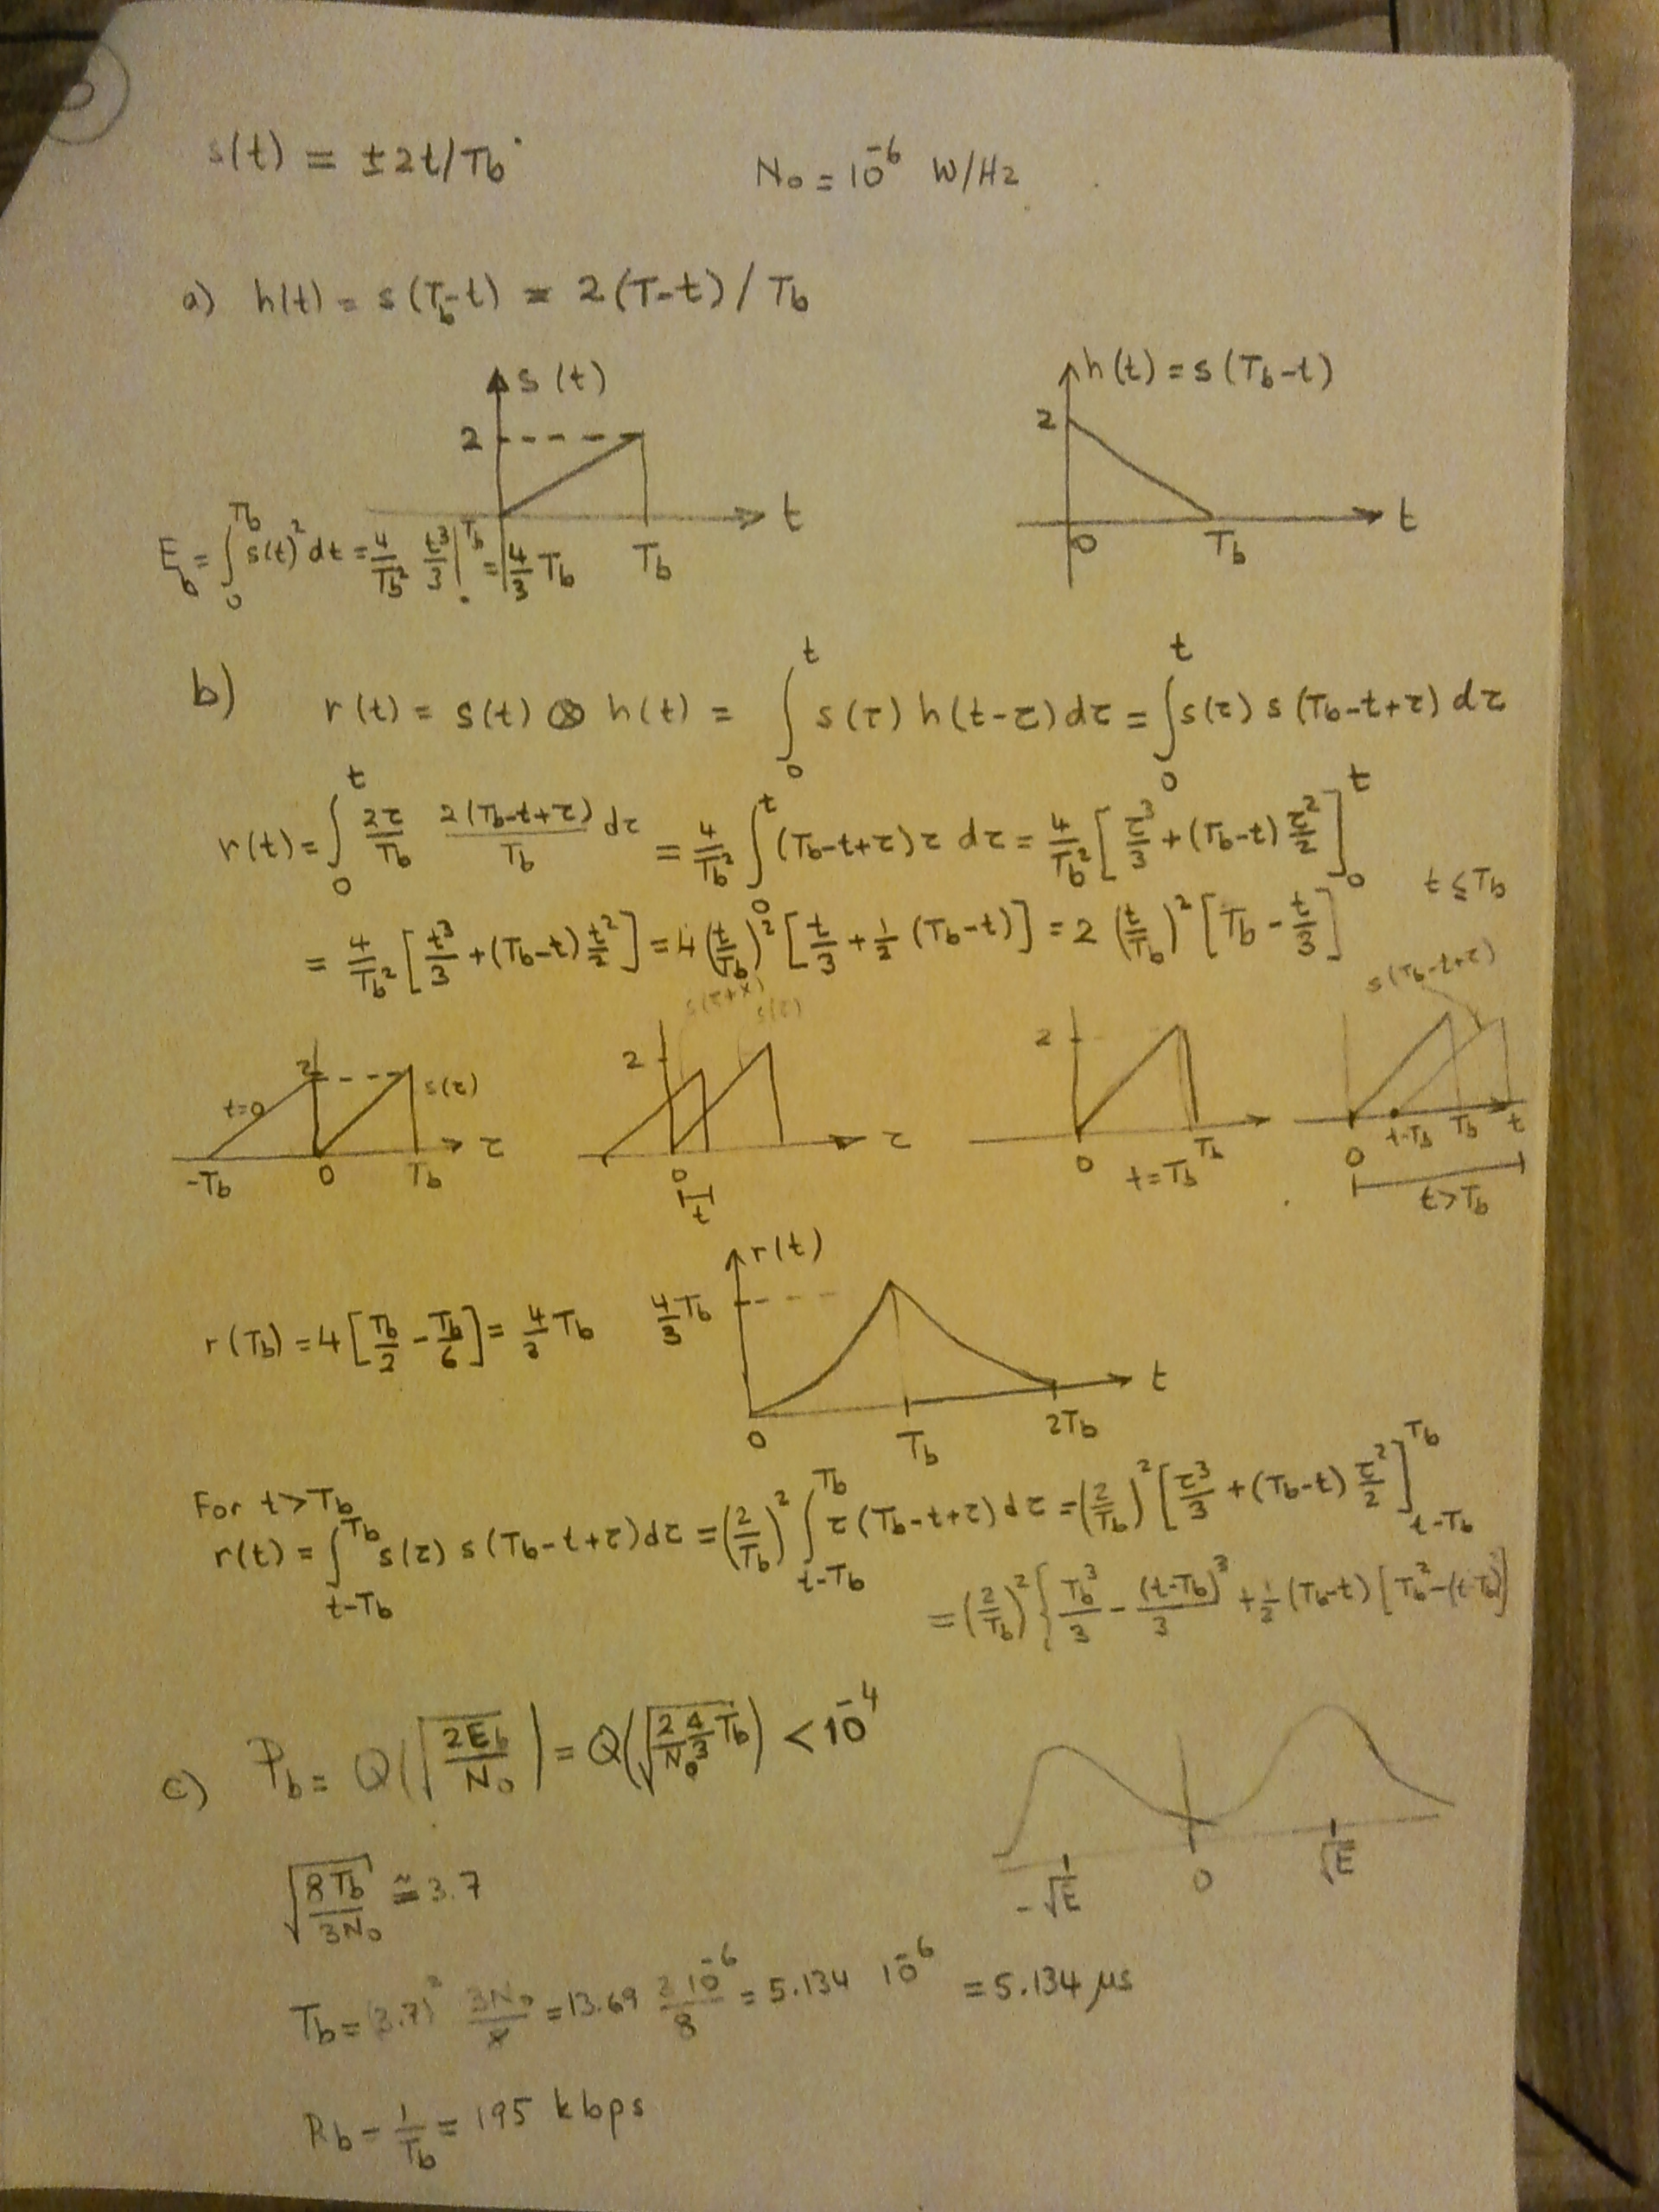 s(t) = ±2t/Tb
N₀ = 10⁻⁶ W/Hz
a) h(t) = s(Tb-t) = 2(T-t)/Tb
s(t)
2
t
Tb
h(t) = s(Tb-t)
2
0
Tb
t
Eb = ∫₀^Tb s(t)² dt = 4/Tb² t³/3 |^Tb = 4/3 Tb
b) r(t) = s(t) ⊗ h(t) = ∫₀^t s(τ) h(t-τ) dτ = ∫₀^t s(τ) s(Tb-t+τ) dτ
r(t) = ∫₀^t 2τ/Tb 2(Tb-t+τ)/Tb dτ = 4/Tb² ∫₀^t (Tb-t+τ)τ dτ = 4/Tb² [τ³/3 + (Tb-t) τ²/2]₀^t t ≤ Tb
= 4/Tb² [t³/3 + (Tb-t) t²/2] = 4(t/Tb)² [t/3 + 1/2 (Tb-t)] = 2 (t/Tb)² [Tb - t/3]
t=0
2
s(τ)
-Tb
0
Tb
τ
s(τ)
2
0
t
τ
2
0
t=Tb
Tb
s(Tb-t+τ)
0
t-Tb
Tb
t
t>Tb
r(Tb) = 4[Tb/2 - Tb/6] = 4/3 Tb
4/3 Tb
r(t)
0
Tb
2Tb
t
For t>Tb
r(t) = ∫_{t-Tb}^{Tb} s(τ) s(Tb-t+τ) dτ = (2/Tb)² ∫_{t-Tb}^{Tb} τ(Tb-t+τ) dτ = (2/Tb)² [τ³/3 + (Tb-t) τ²/2]_{t-Tb}^{Tb}
= (2/Tb)² {Tb³/3 - (t-Tb)³/3 + 1/2 (Tb-t) [Tb² - (t-Tb)]
c) Pb = Q(√(2Eb/N₀)) = Q(√(2/N₀ 4/3 Tb)) < 10⁻⁴
-√E
0
√E
√(8Tb/3N₀) ≅ 3.7
Tb = (3.7)² 3N₀/8 = 13.69 3 10⁻⁶/8 = 5.134 10⁻⁶ = 5.134 μs
Rb = 1/Tb = 195 kbps